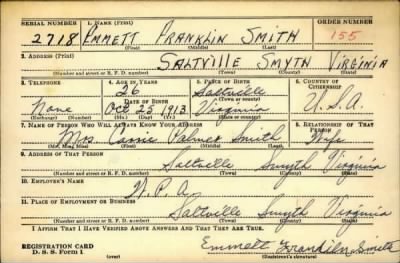 SERIAL NUMBER 1. NAME (Print) ORDER NUMBER
2718 EMMETT FRANKLIN SMITH 155
(First) (Middle) (Last)
2. ADDRESS (Print)
SALTVILLE SMYTH VIRGINIA
(Number and street or R. F. D. number) (Town) (County) (State)
3. TELEPHONE 4. AGE IN YEARS 5. PLACE OF BIRTH 6. COUNTRY OF CITIZENSHIP
26 Saltville
DATE OF BIRTH (Town or county)
None Oct 25 1913 Virginia U.S.A.
(Exchange) (Number) (Mo.) (Day) (Yr.) (State or country)
7. NAME OF PERSON WHO WILL ALWAYS KNOW YOUR ADDRESS 8. RELATIONSHIP OF THAT PERSON
Mrs. Palmer Smith Wife
(Mr., Mrs., Miss) (First) (Middle) (Last)
9. ADDRESS OF THAT PERSON
Saltville Smyth Virginia
(Number and street or R. F. D. number) (Town) (County) (State)
10. EMPLOYER'S NAME
W. P. A.
11. PLACE OF EMPLOYMENT OR BUSINESS
Saltville Smyth Virginia
(Number and street or R. F. D. number) (Town) (County) (State)
I AFFIRM THAT I HAVE VERIFIED ABOVE ANSWERS AND THAT THEY ARE TRUE.
REGISTRATION CARD Emmett Franklin Smith
D. S. S. Form 1 (over) (Registrant's signature)